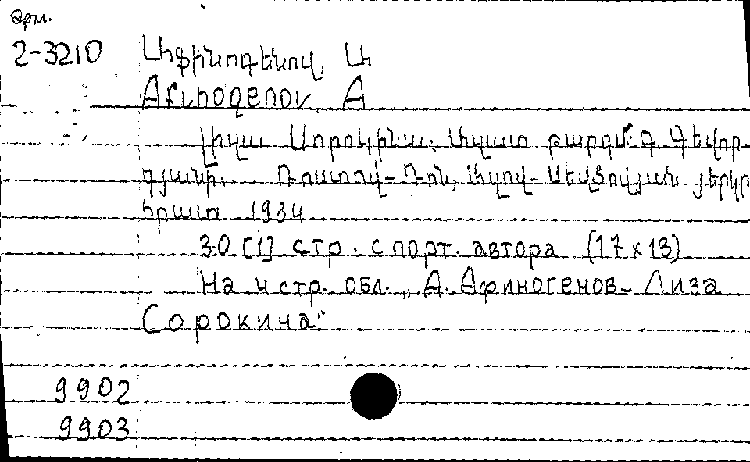 Арм.
2-3210 Աֆինոգենով, Ա
Afinogenov A
Լիզա Սորոկինա. պատմ թարգմ. Գ Գևոր-
գյանի. Ռոստով-Դոն, Ազով-Սևծովյան յերկր
հրատ 1934
30 [1] стр. с порт. автора (17 x 13)
На 4 стр. обл.: „А. Афиногенов- Лиза
Сорокина"
9902
9903